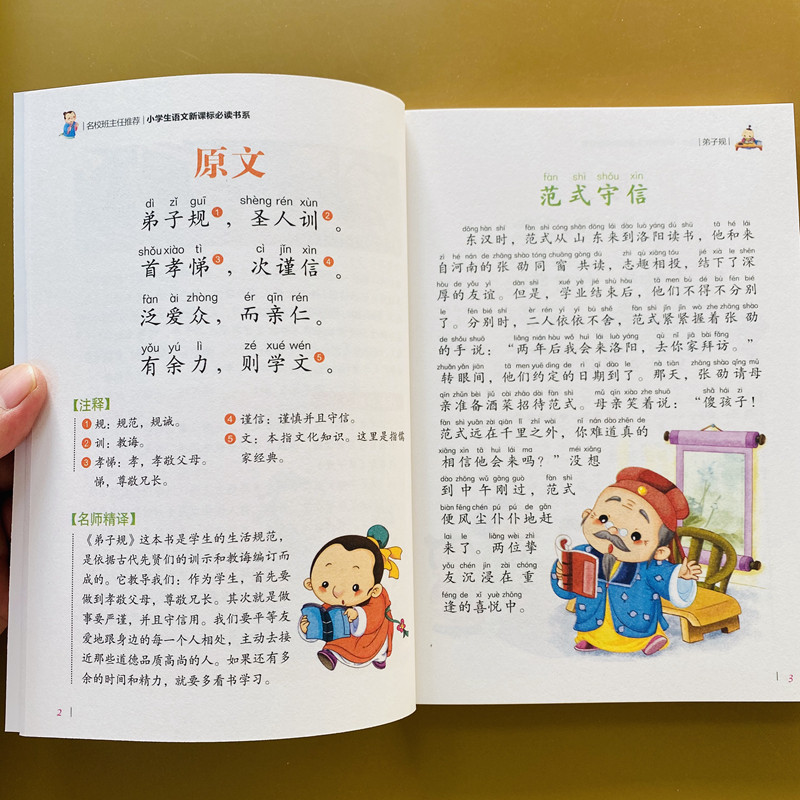 名校班主任推荐|小学生语文新课标必读书系
原文
dì zǐ guī shèng rén xùn
弟子规①，圣人训②。
shǒu xiào tì cì jǐn xìn
首孝悌③，次谨信④。
fàn ài zhòng ér qīn rén
泛爱众，而亲仁。
yǒu yú lì zé xué wén
有余力，则学文⑤。
【注释】
①规：规范，规诫。
②训：教诲。
③孝悌：孝，孝敬父母。
悌，尊敬兄长。
④谨信：谨慎并且守信。
⑤文：本指文化知识。这里是指儒
家经典。
【名师精译】
《弟子规》这本书是学生的生活规范，
是依据古代先贤们的训示和教诲编订而
成的。它教导我们：作为学生，首先要
做到孝敬父母，尊敬兄长。其次就是做
事要严谨，并且守信用。我们要平等友
爱地跟身边的每一个人相处，主动去接
近那些道德品质高尚的人。如果还有多
余的时间和精力，就要多看书学习。
2
[弟子规]
fàn shì shǒu xìn
范式守信
dōng hàn shí fàn shì cóng shān dōng lái dào luò yáng dú shū tā hé lái
东汉时，范式从山东来到洛阳读书，他和来
zì hé nán de zhāng shào tóng chuāng gòng dú zhì qù xiāng tóu jié xià le shēn
自河南的张劭同窗共读，志趣相投，结下了深
hòu de yǒu yì dàn shì xué yè jié shù hòu tā men bù dé bù fēn bié
厚的友谊。但是，学业结束后，他们不得不分别
le fēn bié shí èr rén yī yī bù shě fàn shì jǐn jǐn wò zhe zhāng shào
了。分别时，二人依依不舍，范式紧紧握着张劭
de shǒu shuō liǎng nián hòu wǒ huì lái luò yáng qù nǐ jiā bài fǎng
的手说：“两年后我会来洛阳，去你家拜访。”
zhuǎn yǎn jiān tā men yuē dìng de rì qī dào le nà tiān zhāng shào qǐng mǔ
转眼间，他们约定的日期到了。那天，张劭请母
qīn zhǔn bèi jiǔ cài zhāo dài fàn shì mǔ qīn xiào zhe shuō shǎ hái zi
亲准备酒菜招待范式。母亲笑着说：“傻孩子！
fàn shì yuǎn zài qiān lǐ zhī wài nǐ nán dào zhēn de
范式远在千里之外，你难道真的
xiāng xìn tā huì lái ma méi xiǎng
相信他会来吗？”没想
dào zhōng wǔ gāng guò fàn shì
到中午刚过，范式
biàn fēng chén pú pú de gǎn
便风尘仆仆地赶
lái le liǎng wèi zhì
来了。两位挚
yǒu chén jìn zài chóng
友沉浸在重
féng de xǐ yuè zhōng
逢的喜悦中。
3